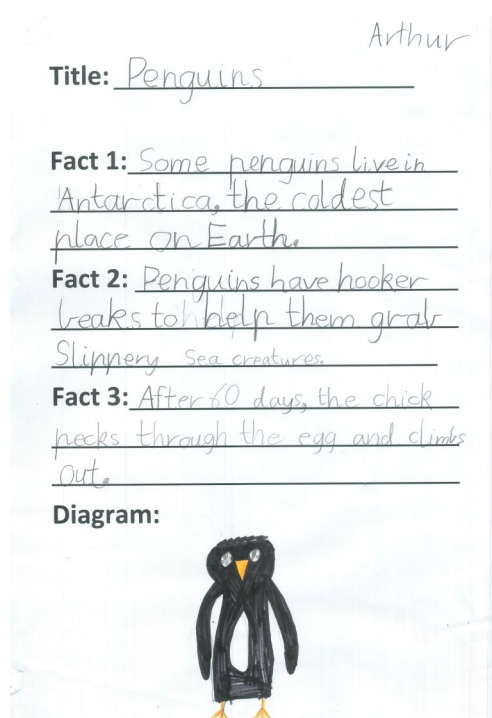 Arthur
Title: Penguins
Fact 1: Some penguins live in
Antarctica, the coldest
place on Earth.
Fact 2: Penguins have hooker
beaks to help them grab
Slippery sea creatures.
Fact 3: After 60 days, the chick
pecks through the egg and climbs
out.
Diagram: